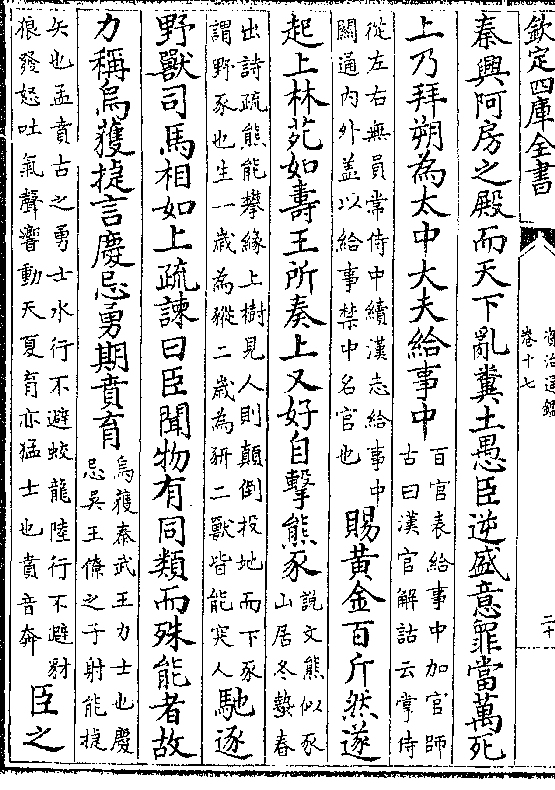 欽定四庫全書
資治通鑑
卷十七
二十
秦興阿房之殿而天下亂糞土愚臣逆盛意罪當萬死
上乃拜朔為太中大夫給事中
百官表給事中加官師
古曰漢官解詁云掌侍
從左右無員常侍中續漢志給事中
關通内外盖以給事禁中名官也
賜黃金百斤然遂
起上林苑如壽王所奏上又好自擊熊豕
說文熊似豕
山居冬蟄春
出詩疏熊能攀緣上樹見人則顛倒投地而下豕
謂野豕也生一歲為豵二歲為豜二獸皆能突人
馳逐
野獸司馬相如上疏諫曰臣聞物有同類而殊能者故
力稱烏獲捷言慶忌勇期賁育
烏獲秦武王力士也慶
忌吳王僚之子射能捷
矢也孟賁古之勇士水行不避蛟龍陸行不避豺
狼發怒吐氣聲響動天夏育亦猛士也賁音奔
臣之